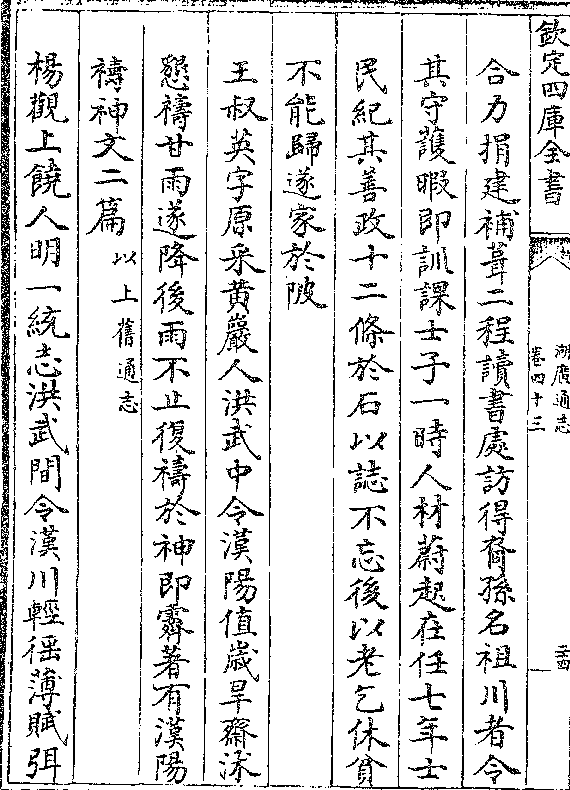 欽定四庫全書
湖廣通志
卷四十三
二十四
合力捐建補葺二程讀書處訪得裔孫名祖川者令
其守護暇即訓課士子一時人材蔚起在任七年士
民紀其善政十二條於石以誌不忘後以老乞休貧
不能歸遂家於陂
王叔英字原采黄巖人洪武中令漢陽值歲旱齋沐
懇禱甘雨遂降後雨不止復禱於神即霽著有漢陽
禱神文二篇以上舊通志
楊觀上饒人明一統志洪武間令漢川輕徭薄賦弭